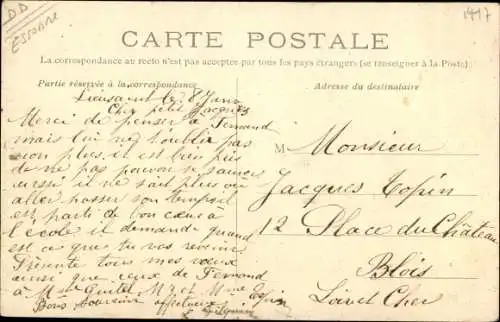 DD
ESSONNE
1417
CARTE POSTALE
La correspondance au recto n'est pas acceptée par tous les pays étrangers (se renseigner à la Poste)
Partie réservée à la correspondance
Adresse du destinataire
Lieusaint le 8 Janv
Cher petit Jacques
Merci de penser à Fernand
mais lui ne t'oublie pas
non plus, il est bien
de ne pas pouvoir
aussi il ne sait plus où
aller passer son temps il
est parti de bon cœur à
l'école il demande quand
est ce que tu vas revenir
Présente tous mes vœux
ainsi que ceux de Fernand
à Mme Mr et Mme Topin
Bons affectueux
M Monsieur
Jacques Topin
12 Place du Château
Blois
Loir et Cher